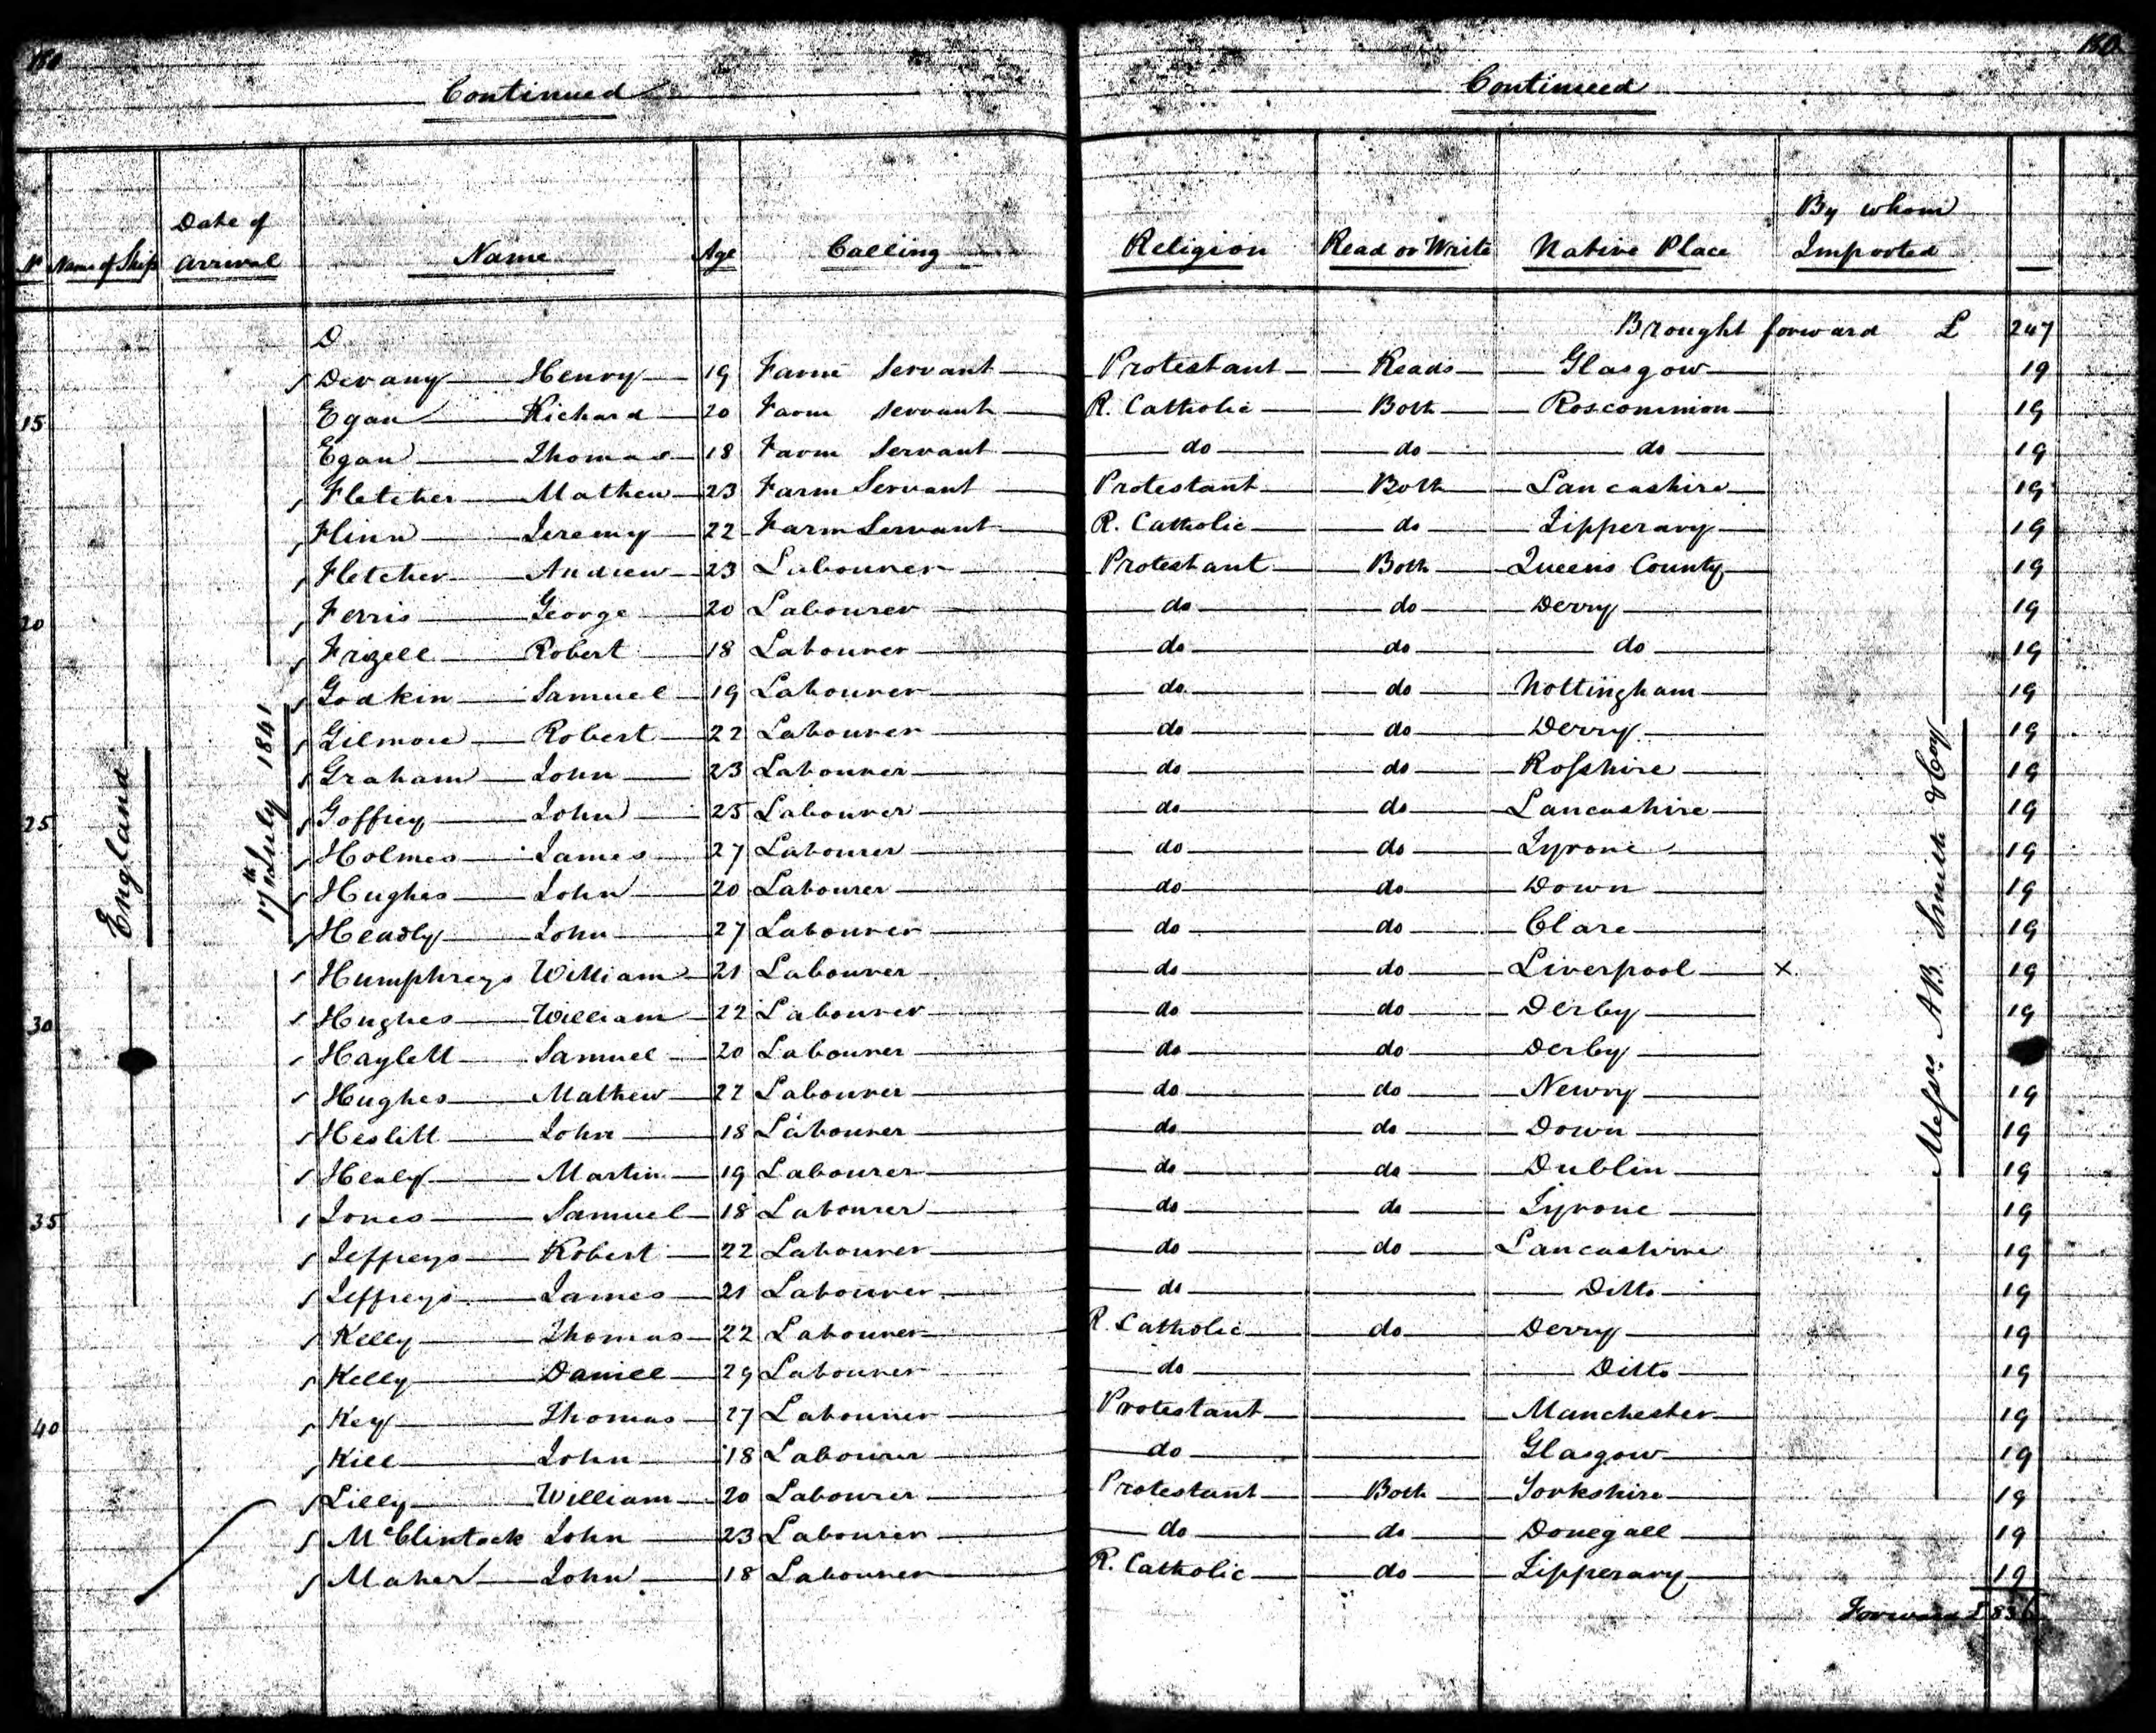 180 180
Continued Continued
No Name of Ship Date of arrival Name Age Calling Religion Read or Write Native Place By whom Imported
D Brought forward £ 247
Devany Henry 19 Farm Servant Protestant Reads Glasgow 19
15 Egan Richard 20 Farm Servant R. Catholic Both Roscommon 19
Egan Thomas 18 Farm Servant do do do 19
Fletcher Mathew 23 Farm Servant Protestant Both Lancashire 19
Flinn Jeremy 22 Farm Servant R. Catholic do Tipperary 19
Fletcher Andrew 23 Labourer Protestant Both Queens County 19
20 Ferris George 20 Labourer do do Derry 19
Frizell Robert 18 Labourer do do do 19
Godkin Samuel 19 Labourer do do Nottingham 19
Gilmore Robert 22 Labourer do do Derry 19
Graham John 23 Labourer do do Rosshire 19
25 Goffrey John 25 Labourer do do Lancashire 19
Holmes James 27 Labourer do do Tyrone 19
Hughes John 20 Labourer do do Down 19
Headly John 27 Labourer do do Clare 19
Humphreys William 21 Labourer do do Liverpool × 19
30 Hughes William 22 Labourer do do Derby 19
Haylett Samuel 20 Labourer do do Derby
Hughes Mathew 22 Labourer do do Newry 19
Heslitt John 18 Labourer do do Down 19
Healy Martin 19 Labourer do do Dublin 19
35 Jones Samuel 18 Labourer do do Tyrone 19
Jeffreys Robert 22 Labourer do do Lancashire 19
Jeffreys James 21 Labourer do Ditto 19
Kelly Thomas 22 Labourer R. Catholic do Derry 19
Kelly Daniel 29 Labourer do Ditto 19
40 Key Thomas 27 Labourer Protestant Manchester 19
Kill John 18 Labourer do Glasgow 19
Lilly William 20 Labourer Protestant Both Yorkshire 19
McClintock John 23 Labourer do do Donegall 19
Maher John 18 Labourer R. Catholic do Tipperary 19
Forward £ 836
England
17th July 1841
Messrs A.B. Smith & Coy